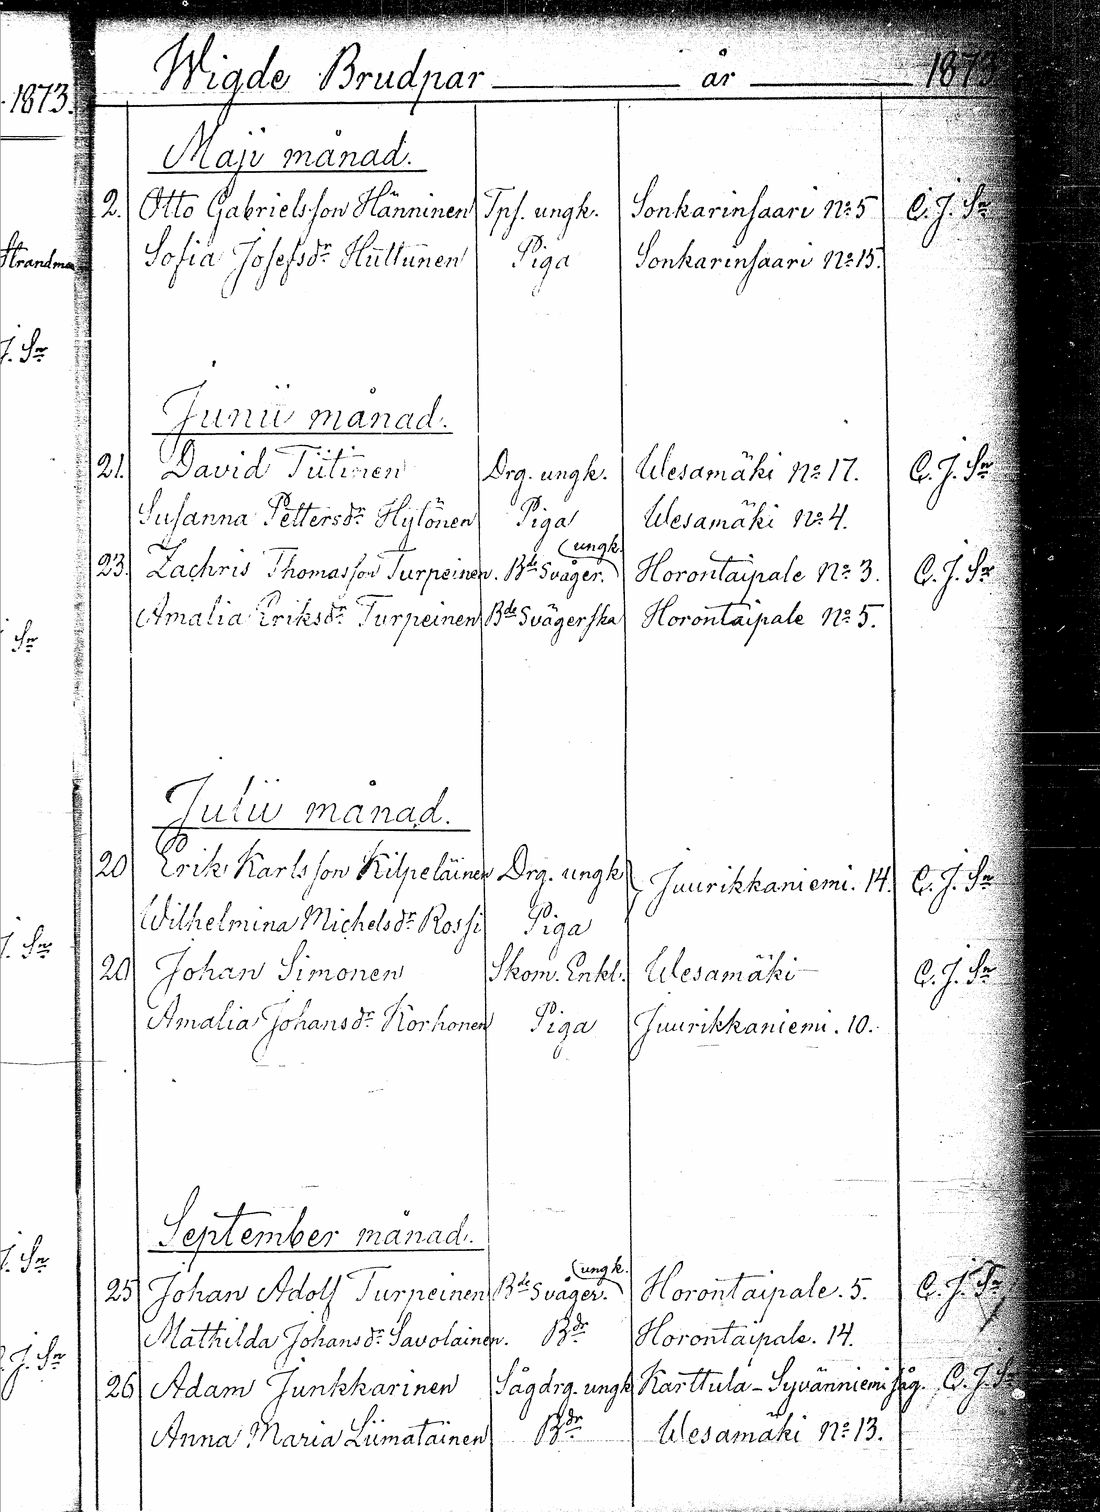 1873.
Wigde Brudpar ______ år ______ 1873
Maji månad.
2. Otto Gabrielsson Hänninen Tps. ungk. Sonkarinsaari No 5 C. J. Sn
Strandman
Sofia Josefsdr Huttunen Piga Sonkarinsaari No 15.
J. Sn
Junii månad.
21. David Tiitinen Drg. ungk. Wesamäki No 17. C. J. Sn
Susanna Pettersdr Hylönen Piga Wesamäki No 4.
23. Zachris Thomasson Turpeinen. Bde Svåger. (ungk. Horontaipale No 3. C. J. Sn
Amalia Eriksdr Turpeinen Bde Svägerska Horontaipale No 5.
Sn
Julii månad.
20 Erik Karlsson Kilpeläinen Drg. ungk } Juurikkaniemi. 14. C. J. Sn
Wilhelmina Michelsdr Rossi Piga
J. Sn
20 Johan Simonen Skom. Enkl. Wesamäki C. J. Sn
Amalia Johansdr Korhonen Piga Juurikkaniemi. 10.
September månad.
J. Sn
25 Johan Adolf Turpeinen Bde Svåger. (ungk. Horontaipale. 5. C. J. Sn
Mathilda Johansdr Savolainen. Bdr Horontaipale. 14.
J. Sn
26 Adam Junkkarinen Sågdrg. ungk Karttula - Syvänniemi såg. C. J. Sn
Anna Maria Liimatainen Bdr Wesamäki No 13.